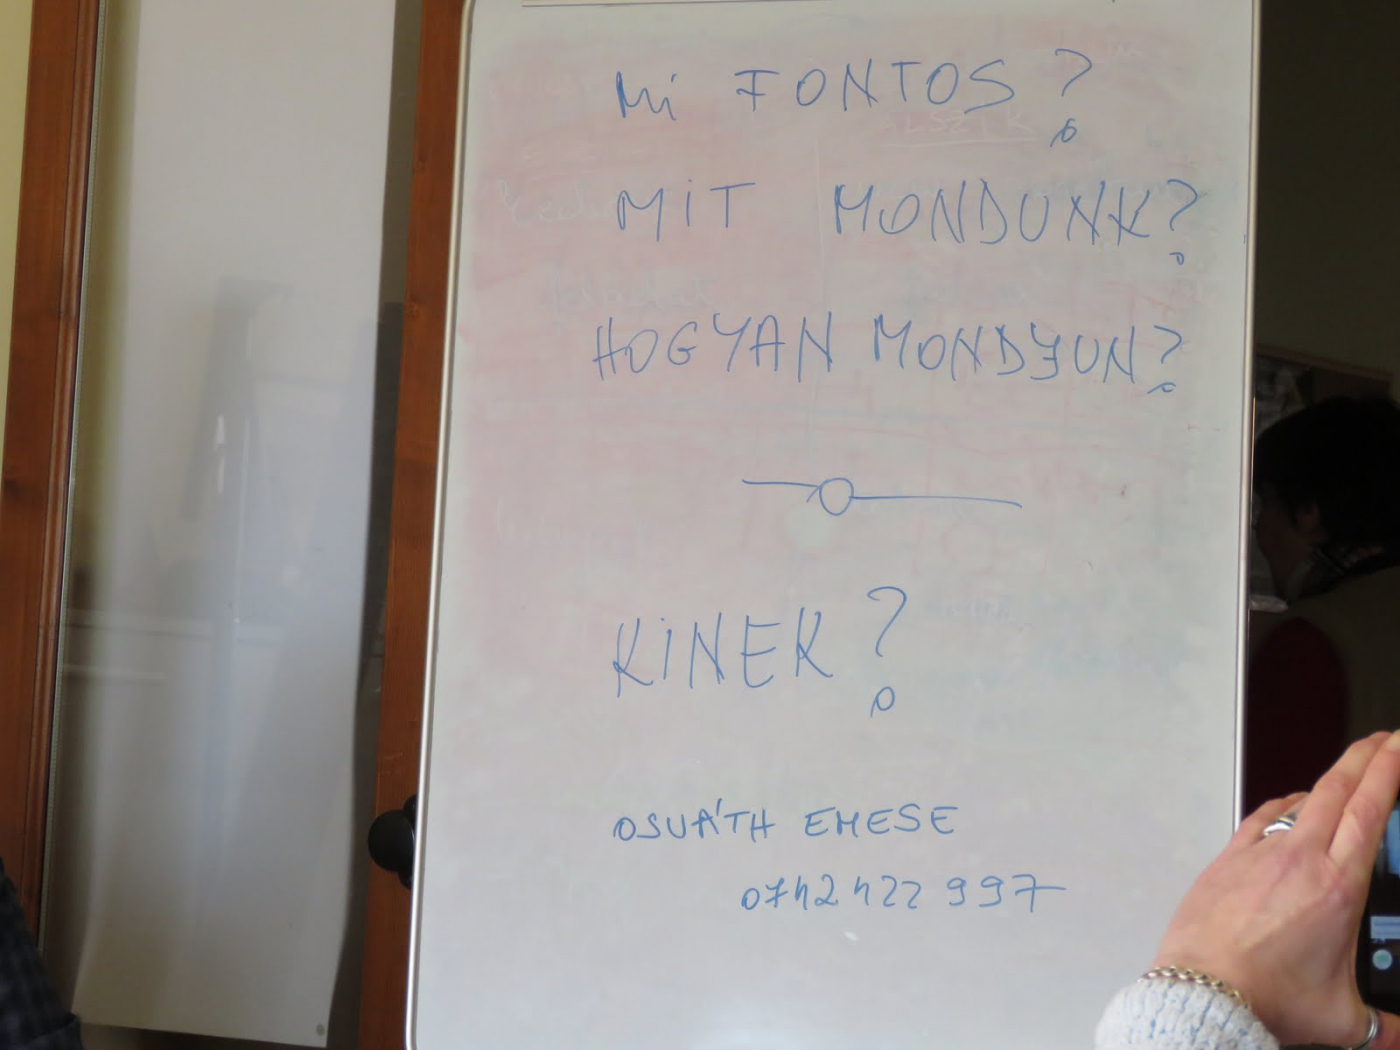 Mi FONTOS?
MiT MONDUNK?
HOGYAN MONDJUN?
KiNEK?
OSVÁTH EMESE
0742 422 997